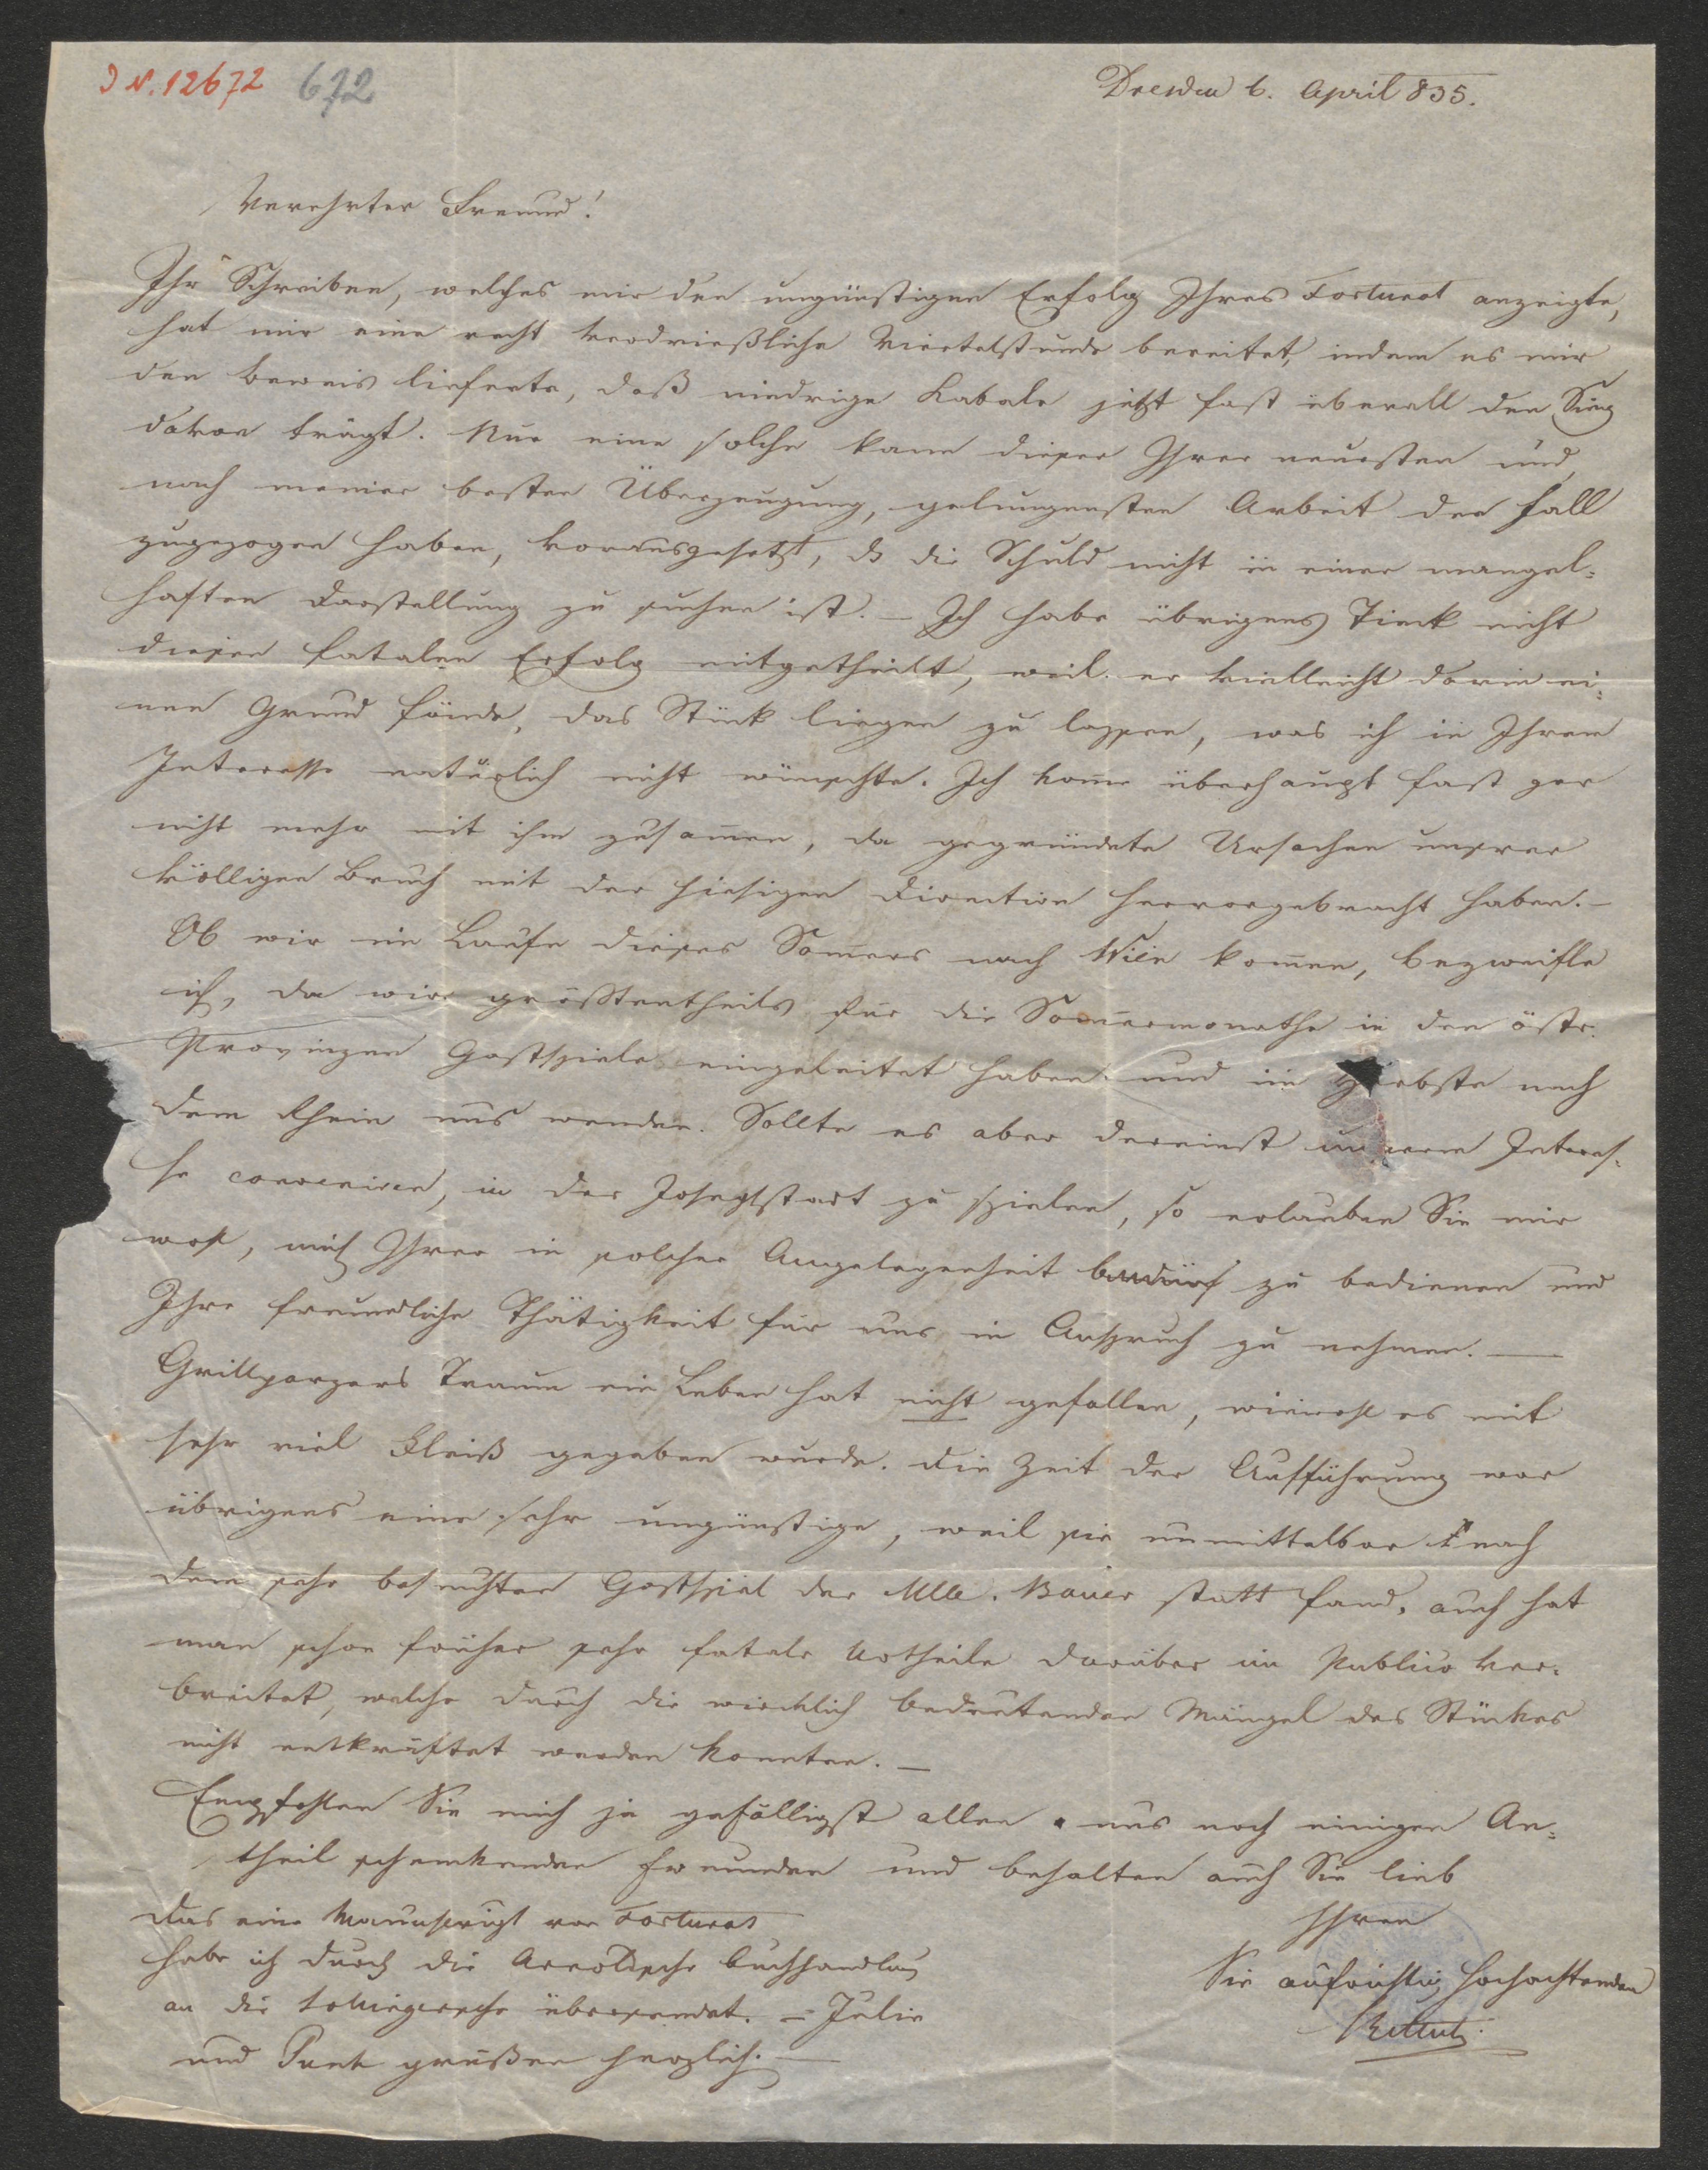 I N. 12672 672
Dresden 6. April 835.
Verehrter Freund!
Ihr Schreiben, welches mir den ungünstigen Erfolg Ihres Fortunat anzeigte,
hat mir eine recht verdrießliche Viertelstunde bereitet, indem es mir
den Beweis lieferte, daß niedrige Kabale jetzt fast überall den Sieg
davon trägt. Nur eine solche kann dieser Ihrer neuesten und,
nach meiner besten Überzeugung, gelungensten Arbeit den Fall
zugezogen haben, vorausgesetzt, dß die Schuld nicht in einer mangel-
haften Darstellung zu suchen ist. – Ich habe übrigens Tieck nicht
diesen fatalen Erfolg mitgetheilt, weil er vielleicht darin ei-
nen Grund fände, das Stück liegen zu lassen, was ich in Ihrem
Interesse natürlich nicht wünschte. Ich kom̄e überhaupt fast gar
nicht mehr mit ihm zusam̄en, da gegründete Ursachen unsren
völligen Bruch mit der hiesigen Direction hervorgebracht haben. –
Ob wir im Laufe dieses Som̄ers nach Wien kom̄en, bezweifle
ich, da wir größtentheils für die Som̄ermonathe in den östr.
Provinzen Gastspiele eingeleitet haben und im Herbste nach
dem Rhein uns wenden. Sollte es aber dereinst unserem Interes-
se conveniren, in der Josephstadt zu spielen, so erlauben Sie mir
wohl, mich Ihrer in solcher Angelegenheit zu bedienen und
Ihre freundliche Thätigkeit für uns in Anspruch zu nehmen. —
Grillparzers Traum ein Leben hat nicht gefallen, wiewohl es mit
sehr viel Fleiß gegeben wurde. Die Zeit der Aufführung war
übrigens eine sehr ungünstige, weil sie unmittelbar nach
dem sehr besuchten Gastspiel der Mlle. Bauer statt fand, auch hat
man schon früher sehr fatale Urtheile darüber im Publico ver-
breitet, welche durch die wircklich bedeutenden Mängel des Stückes
nicht entkräftet werden konnten. –
Empfehlen Sie mich ja gefälligst allen uns noch einigen An-
theil schenkenden Freunden und behalten auch Sie lieb
Ihren
Sie aufrichtig hochachtenden
Rettich
Das eine Manuscript von Fortunat
habe ich durch die Arnoldische Buchhandlung
an die übersendet. – Julie
und grüßen herzlich. —